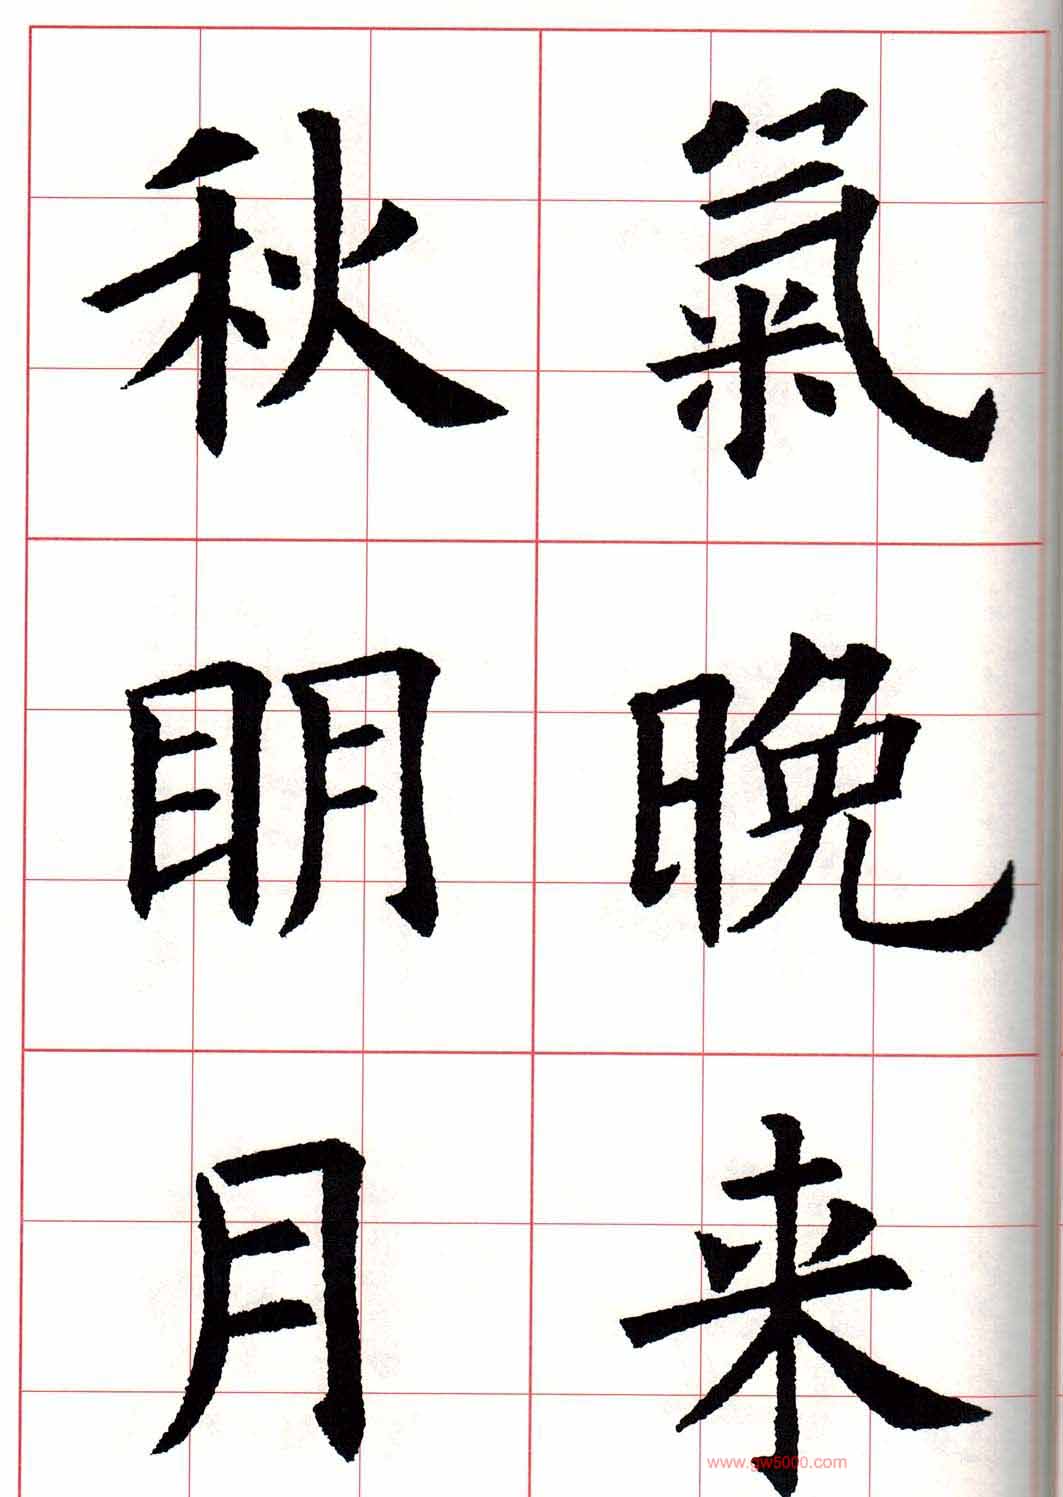 氣晚来
秋明月
www.gw5000.com